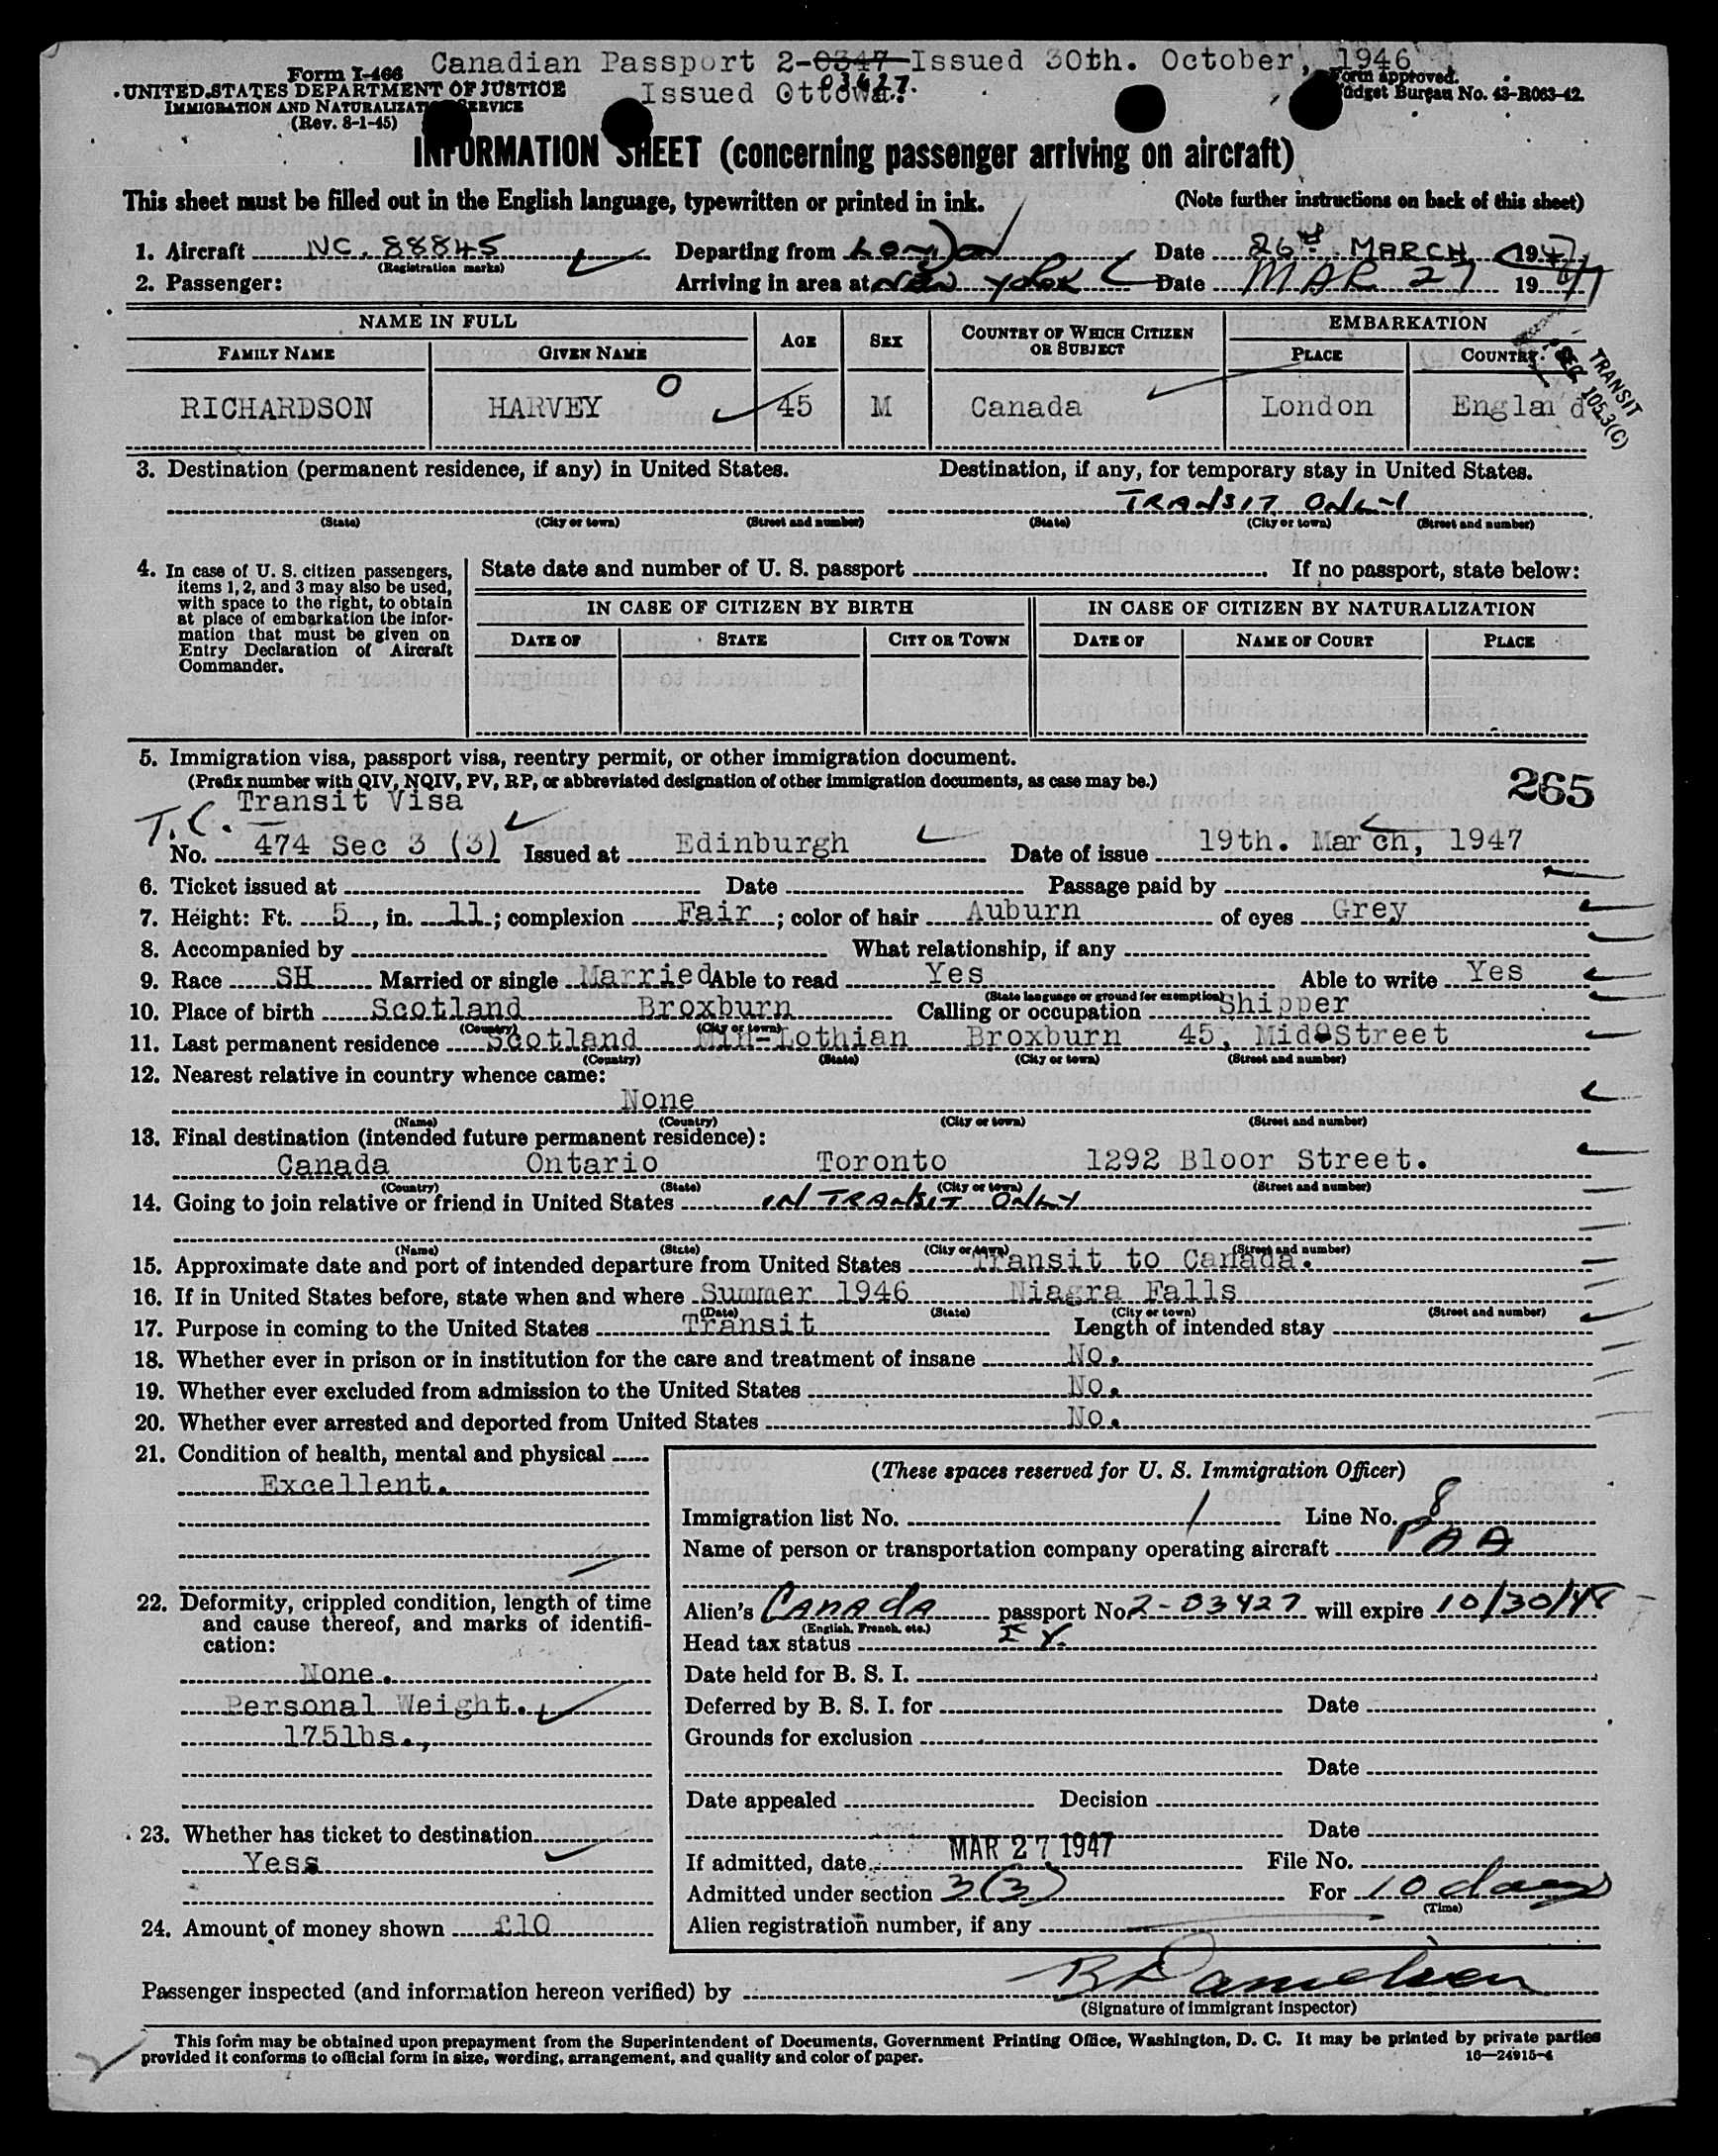 Canadian Passport 2-0347 Issued 30th. October, 1946
Issued Ottowa. 03427.
Form I-466
UNITED STATES DEPARTMENT OF JUSTICE
IMMIGRATION AND NATURALIZATION SERVICE
(Rev. 8-1-45)
Form approved.
Budget Bureau No. 43-R063-42.
INFORMATION SHEET (concerning passenger arriving on aircraft)
This sheet must be filled out in the English language, typewritten or printed in ink. (Note further instructions on back of this sheet)
1. Aircraft NC. 88845 Departing from London Date 26th MARCH 1947
(Registration marks)
2. Passenger: Arriving in area at New York Date MAR 27 1947
NAME IN FULL AGE SEX COUNTRY OF WHICH CITIZEN OR SUBJECT EMBARKATION
FAMILY NAME GIVEN NAME PLACE COUNTRY
TRANSIT
SEC 105.3(C)
RICHARDSON HARVEY O 45 M Canada London England
3. Destination (permanent residence, if any) in United States. Destination, if any, for temporary stay in United States.
TRANSIT ONLY
(State) (City or town) (Street and number) (State) (City or town) (Street and number)
4. In case of U. S. citizen passengers,
items 1, 2, and 3 may also be used,
with space to the right, to obtain
at place of embarkation the infor-
mation that must be given on
Entry Declaration of Aircraft
Commander.
State date and number of U. S. passport If no passport, state below:
IN CASE OF CITIZEN BY BIRTH IN CASE OF CITIZEN BY NATURALIZATION
DATE OF STATE CITY OR TOWN DATE OF NAME OF COURT PLACE
5. Immigration visa, passport visa, reentry permit, or other immigration document.
(Prefix number with QIV, NQIV, PV, RP, or abbreviated designation of other immigration documents, as case may be.)
265
T.C. Transit Visa
No. 474 Sec 3 (3) Issued at Edinburgh Date of issue 19th. March, 1947
6. Ticket issued at Date Passage paid by
7. Height: Ft. 5, in. 11; complexion Fair; color of hair Auburn of eyes Grey
8. Accompanied by What relationship, if any
9. Race SH Married or single Married Able to read Yes Able to write Yes
(State language or ground for exemption)
10. Place of birth Scotland Broxburn Calling or occupation Shipper
(Country) (City or town)
11. Last permanent residence Scotland Min-Lothian Broxburn 45, Mid Street
(Country) (State) (City or town) (Street and number)
12. Nearest relative in country whence came:
None
(Name) (Country) (City or town) (Street and number)
13. Final destination (intended future permanent residence):
Canada Ontario Toronto 1292 Bloor Street.
(Country) (State) (City or town) (Street and number)
14. Going to join relative or friend in United States IN TRANSIT ONLY
(Name) (State) (City or town) (Street and number)
15. Approximate date and port of intended departure from United States Transit to Canada.
16. If in United States before, state when and where Summer 1946 Niagra Falls
(Date) (State) (City or town) (Street and number)
17. Purpose in coming to the United States Transit Length of intended stay
18. Whether ever in prison or in institution for the care and treatment of insane No.
19. Whether ever excluded from admission to the United States No.
20. Whether ever arrested and deported from United States No.
21. Condition of health, mental and physical
Excellent.
22. Deformity, crippled condition, length of time
and cause thereof, and marks of identifi-
cation:
None.
Personal Weight.
175lbs.,
23. Whether has ticket to destination
Yess
24. Amount of money shown £10
(These spaces reserved for U. S. Immigration Officer)
Immigration list No. 1 Line No. 8
Name of person or transportation company operating aircraft PAA
Alien's Canada passport No. 2-03427 will expire 10/30/48
(English, French, etc.)
Head tax status
Date held for B. S. I.
Deferred by B. S. I. for Date
Grounds for exclusion
Date
Date appealed Decision
Date
If admitted, date MAR 27 1947 File No.
Admitted under section 3(3) For 10 days
(Time)
Alien registration number, if any
Passenger inspected (and information hereon verified) by
(Signature of immigrant inspector)
This form may be obtained upon prepayment from the Superintendent of Documents, Government Printing Office, Washington, D. C. It may be printed by private parties
provided it conforms to official form in size, wording, arrangement, and quality and color of paper. 16—24915-4